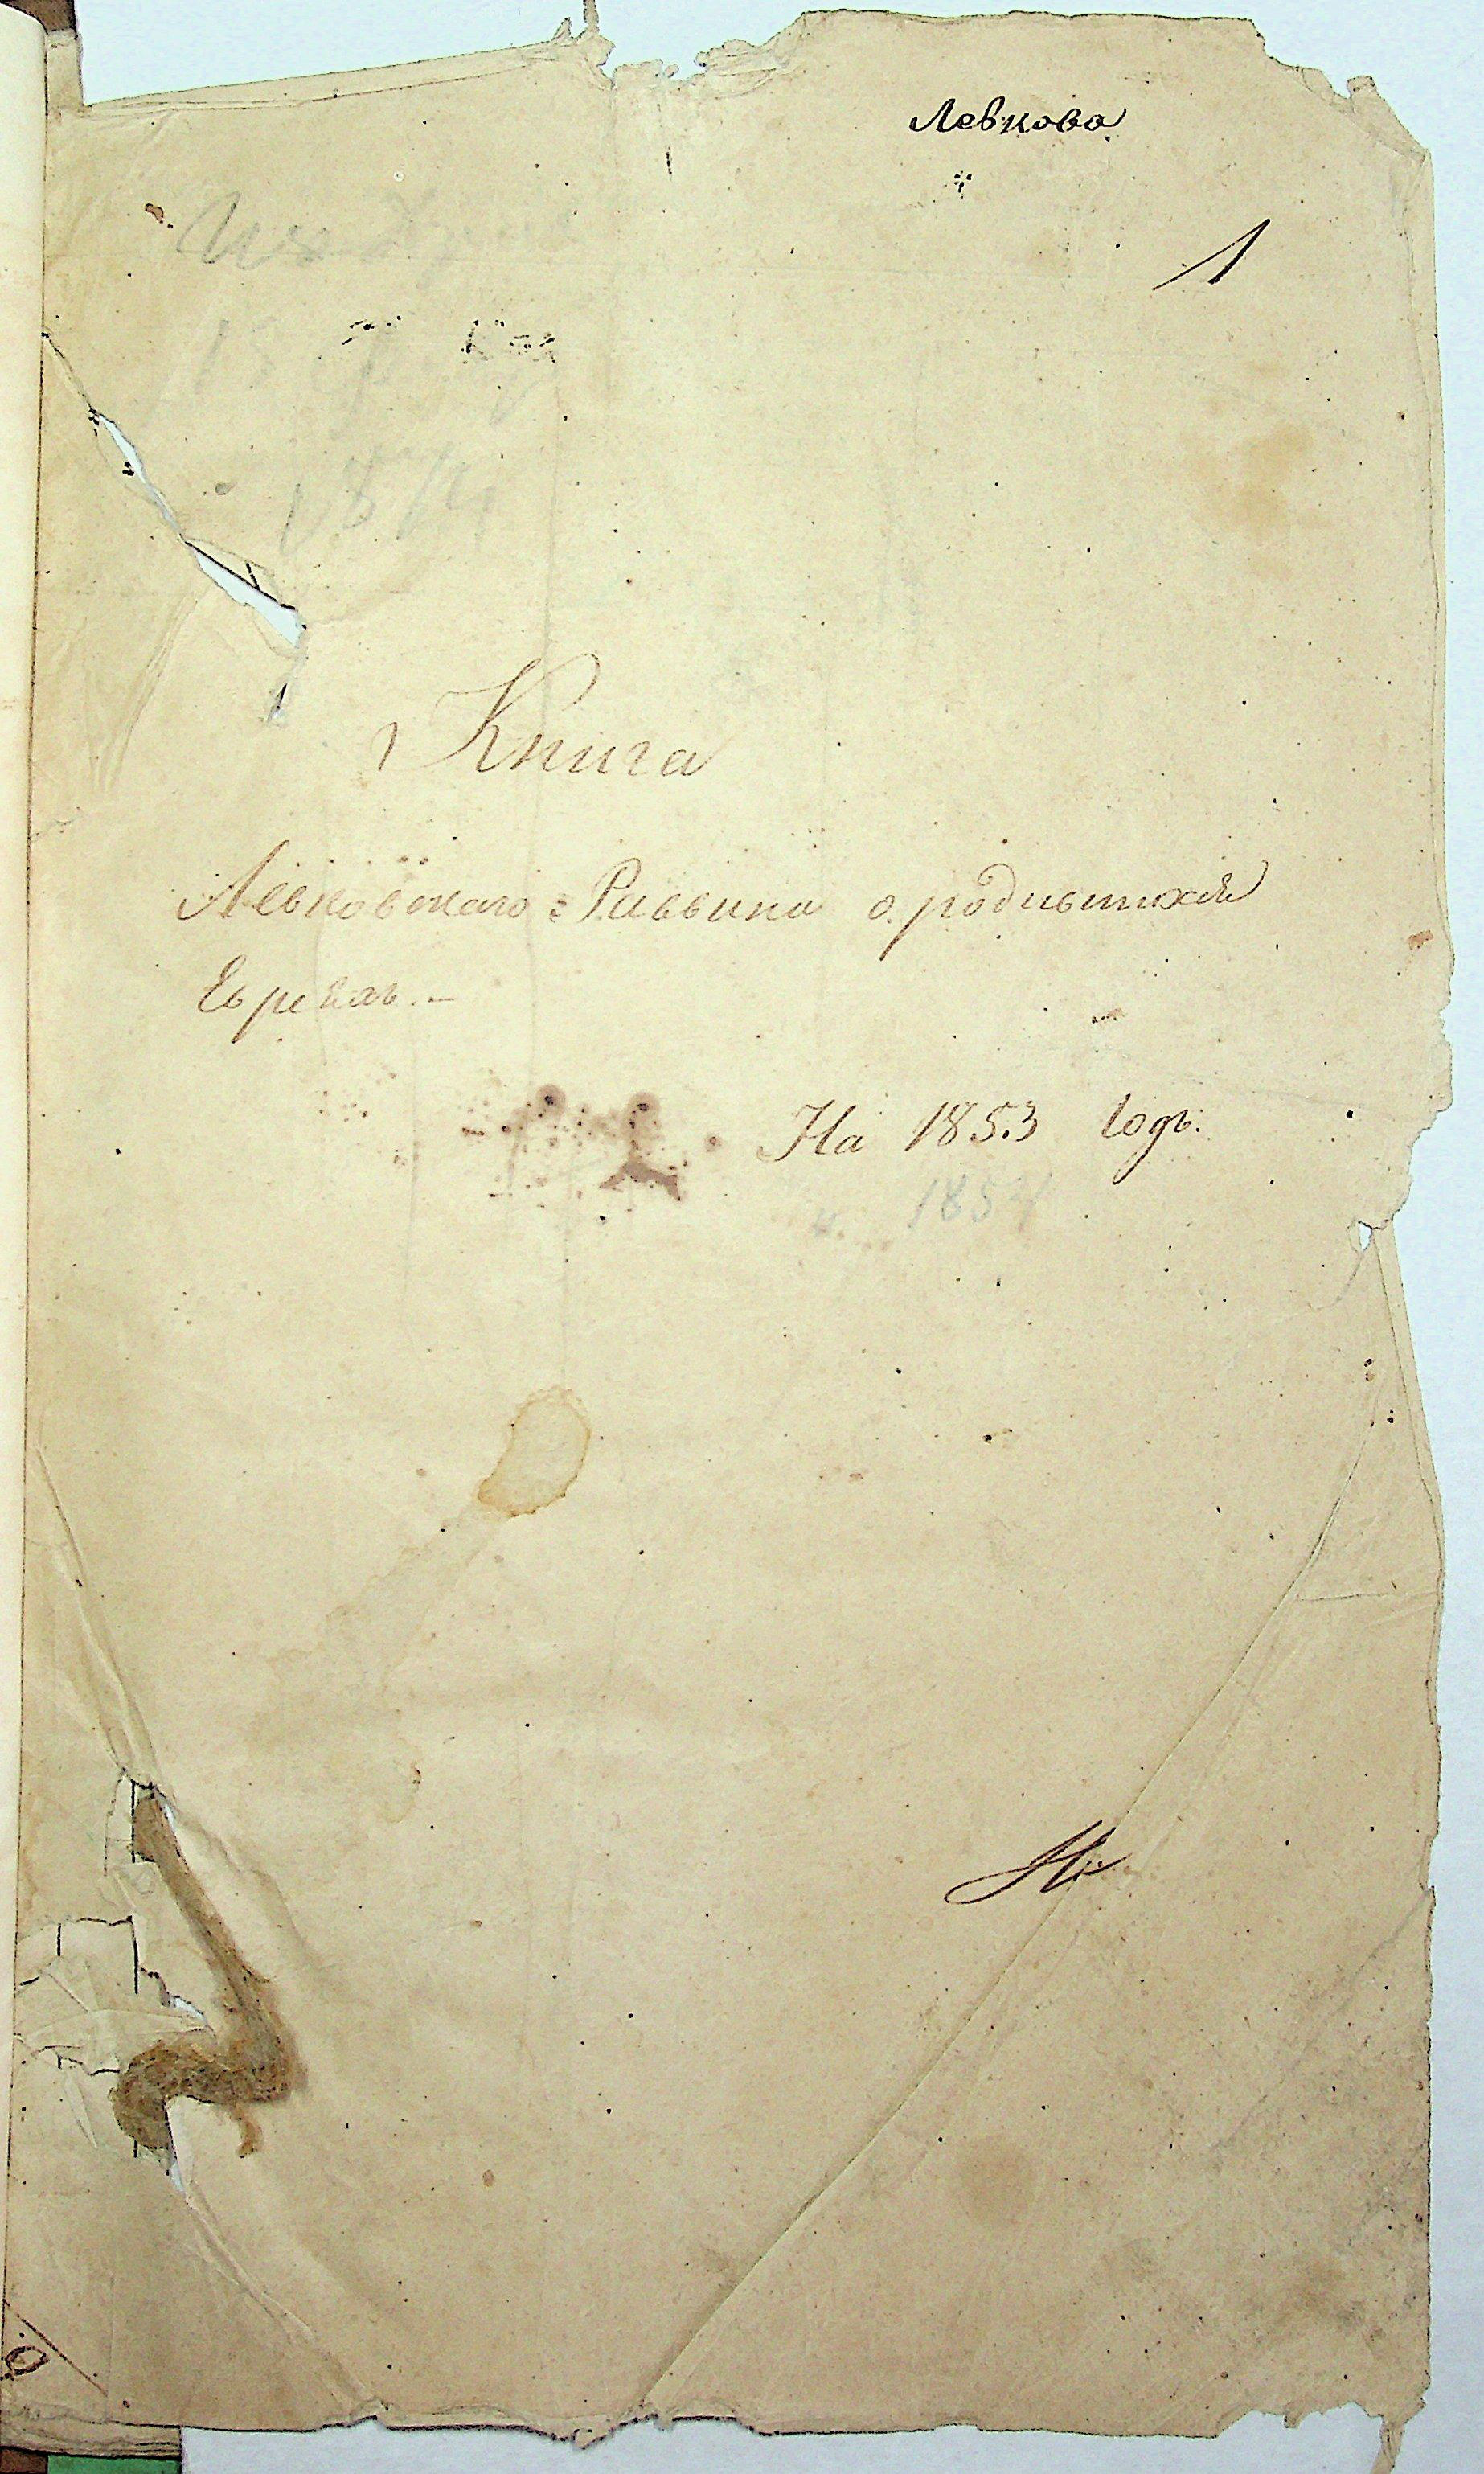 Левкова
1
Книга
Левковскаго Раввина о родившихся
Евреяхъ. –
На 1853 Годъ.
1854